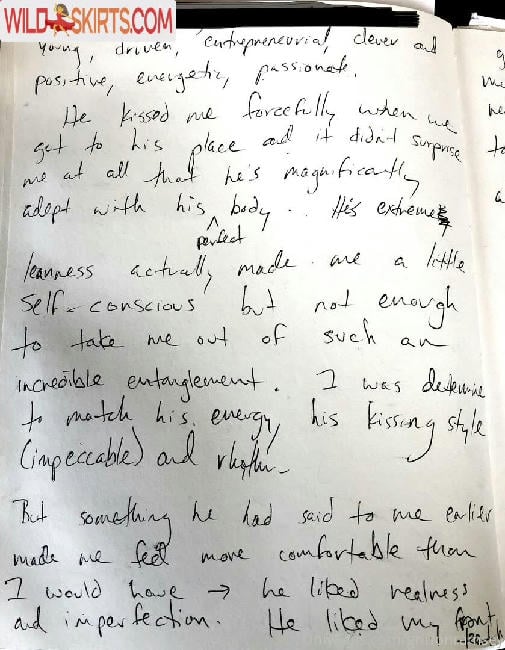 WILD-SKIRTS.COM
young, driven, entrepreneurial, clever and
positive, energetic, passionate.
He kissed me forcefully when we
got to his place and it didn't surprise
me at all that he's magnificantly
adept with his ^ body.. He's extreme
perfect
leanness actually made me a little
self-conscious but not enough
to take me out of such an
incredible entanglement. I was determine
to match his energy, his kissing style
(impeccable) and
But something he had said to me earlier
made me feel more comfortable than
I would have → he liked realness
and imperfection. He liked my front